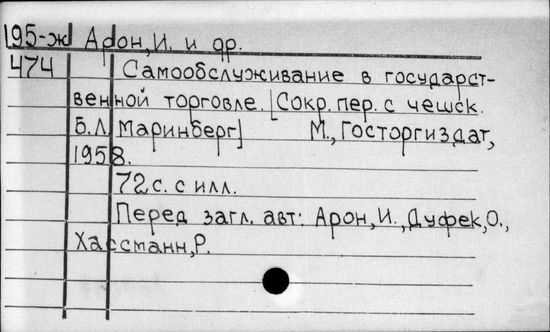 195-ж Арон, И. и др.
474 Самообслуживание в государст-
венной торговле. [Сокр. пер. с чешск.
Б.Л. Маринберг] М., Госторгиздат,
1958.
72 с. с илл.
Перед загл. авт: Арон, И., Дуфек, О.,
Хассманн, Р.